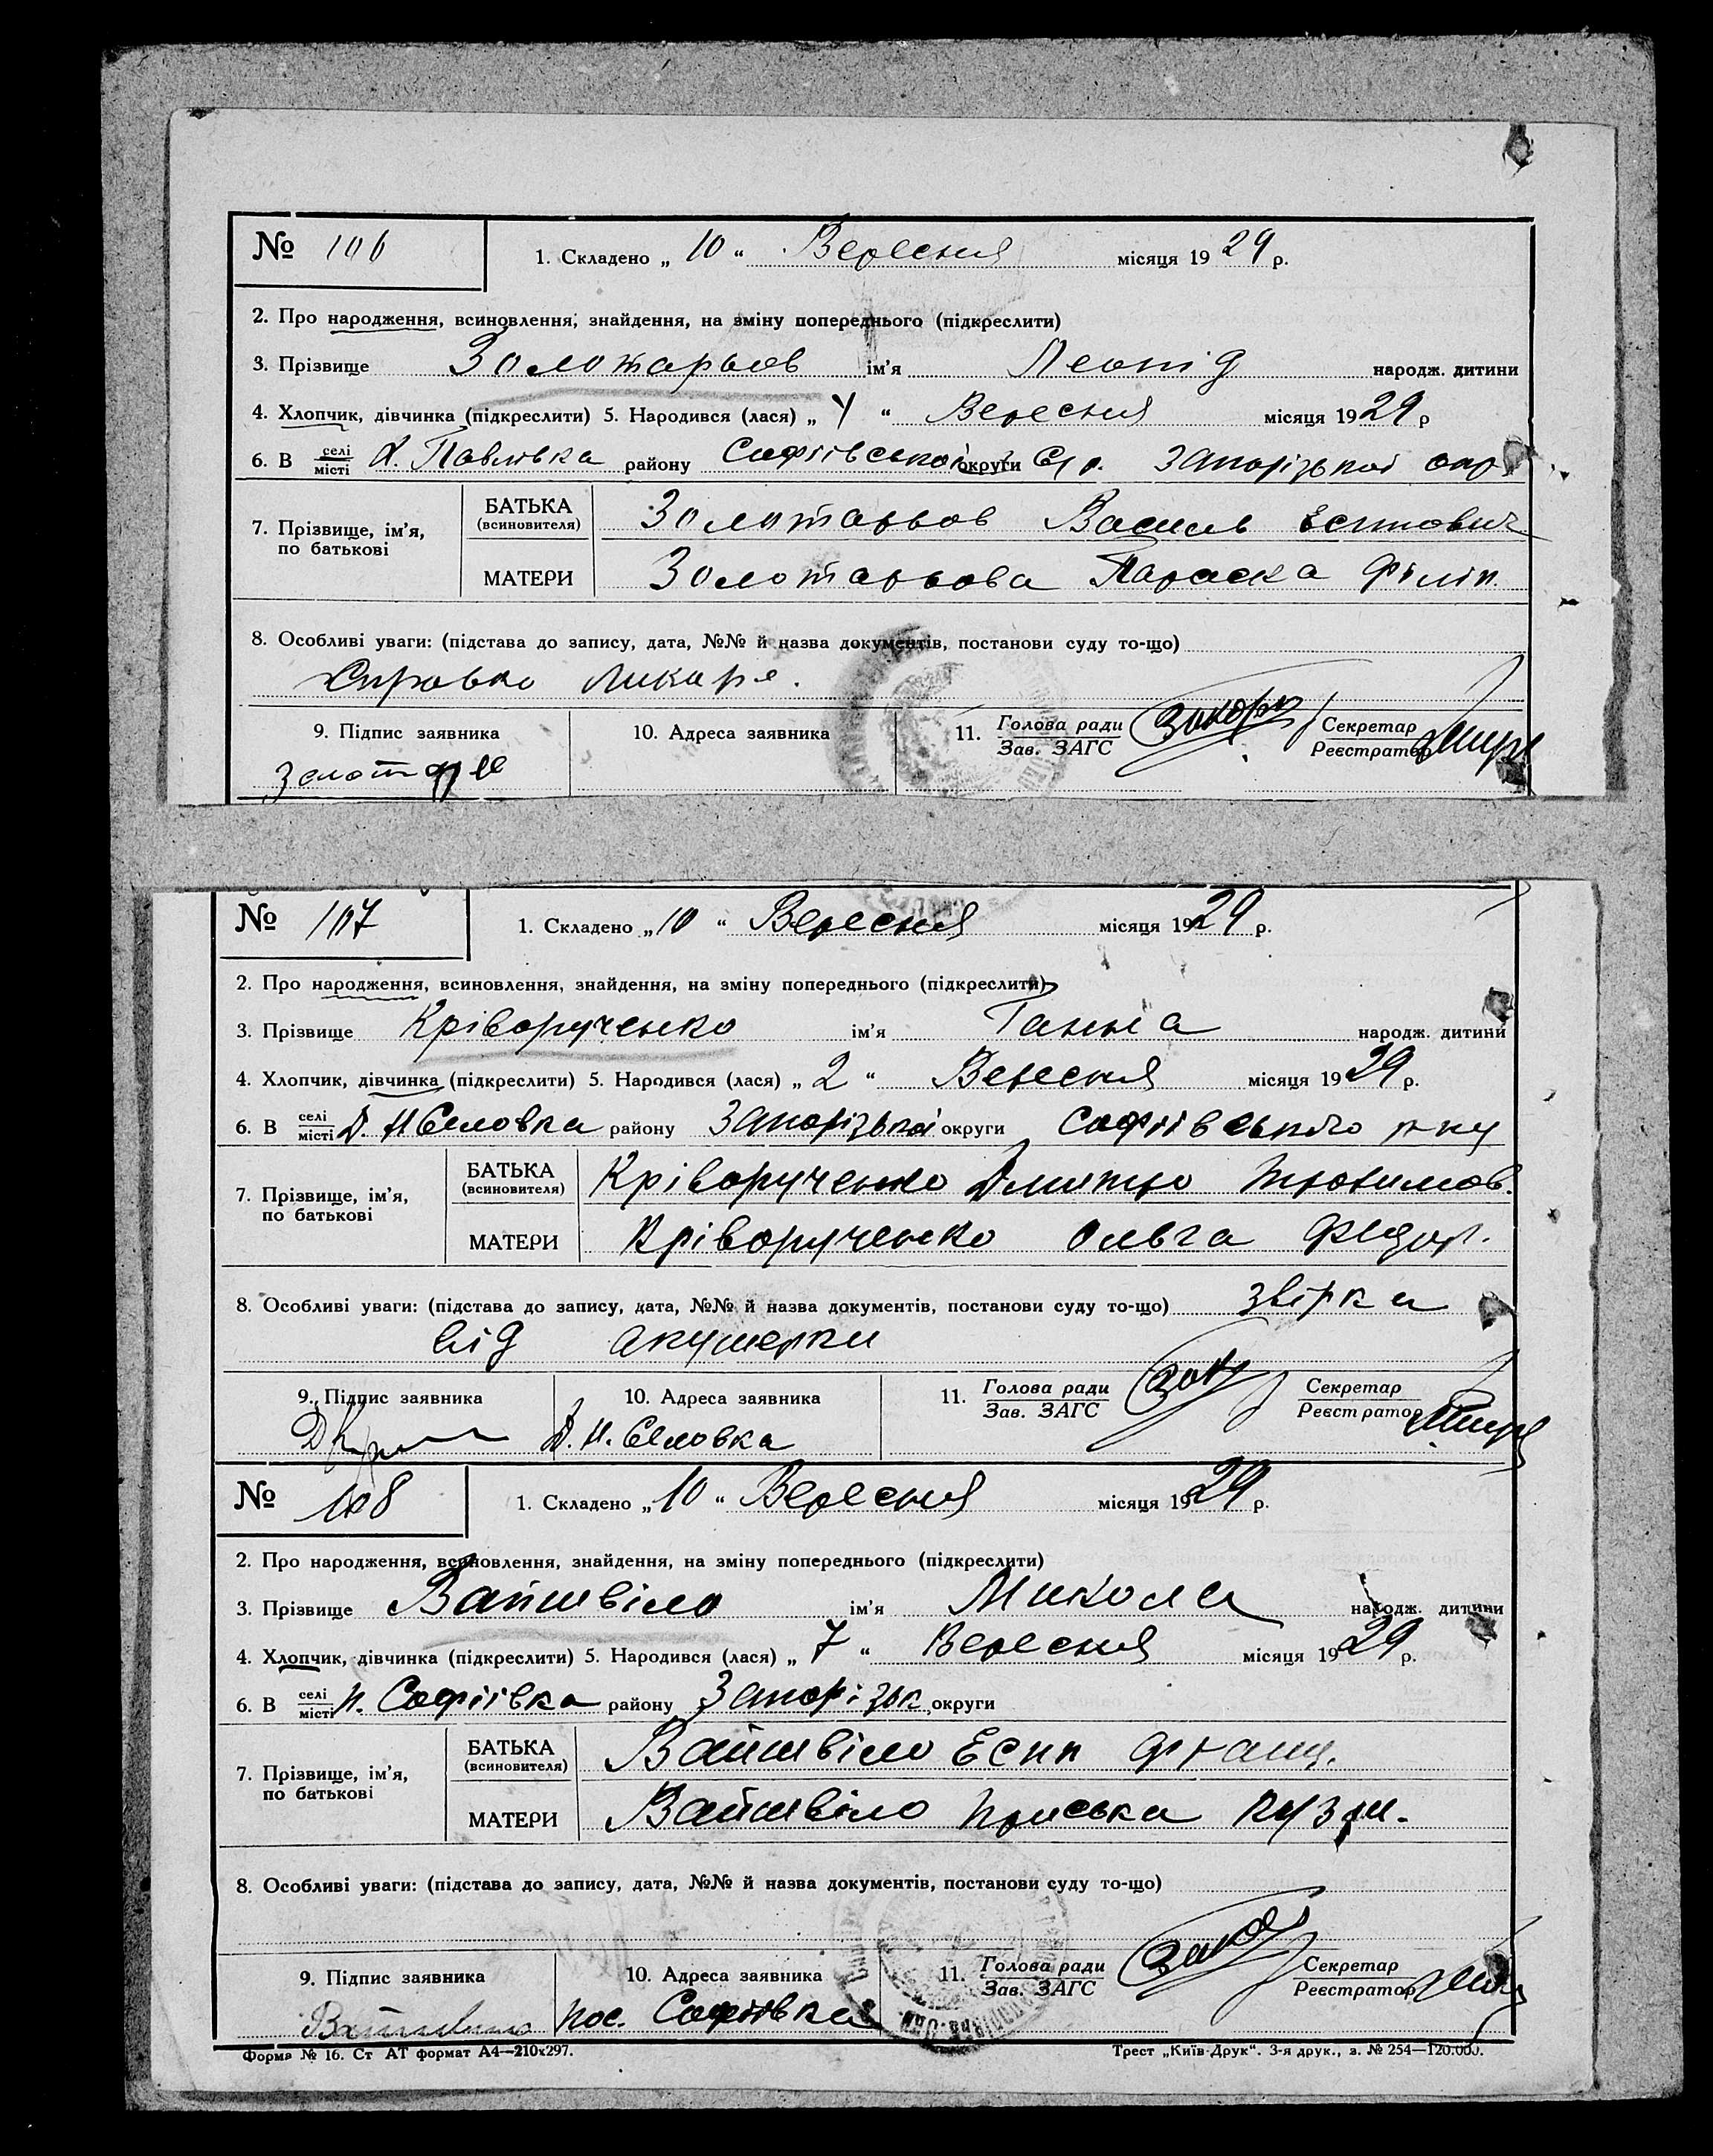 № 106 1. Складено „ 10 “ Вересня місяця 19 29 р.
2. Про народження, всиновлення, знайдення, на зміну попереднього (підкреслити)
3. Прізвище Золотарьов ім’я Леонід народж. дитини
4. Хлопчик, дівчинка (підкреслити) 5. Народився (лася) „ 4 “ Вересня місяця 1929 р
6. В селі місті х. Павлівка району Софіївської округи С/р. Запорізької окр
7. Прізвище, ім’я, по батькові БАТЬКА (всиновителя) Золотарьов Василь Естович
МАТЕРИ Золотарьова Параска Філіп.
8. Особливі уваги: (підстава до запису, дата, №№ й назва документів, постанови суду то-що)
Справка Ликаря.
9. Підпис заявника 10. Адреса заявника 11. Голова ради Зав. ЗАГС Секретар Реєстратор
№ 107 1. Складено „ 10 “ Вересня місяця 1929 р.
2. Про народження, всиновлення, знайдення, на зміну попереднього (підкреслити)
3. Прізвище Кріворученко ім’я Ганна народж. дитини
4. Хлопчик, дівчинка (підкреслити) 5. Народився (лася) „ 2 “ Вересня місяця 1929 р.
6. В селі місті Д. Н Селовка району Запорізької округи Софіївського р-ну
7. Прізвище, ім’я, по батькові БАТЬКА (всиновителя) Кріворученко Дмитро Трохимов.
МАТЕРИ Кріворученко Ольга Федор.
8. Особливі уваги: (підстава до запису, дата, №№ й назва документів, постанови суду то-що) звірка
від акушерки
9. Підпис заявника 10. Адреса заявника 11. Голова ради Зав. ЗАГС Секретар Реєстратор
Д. Н. Селовка
№ 108 1. Складено „ 10 “ Вересня місяця 1929 р.
2. Про народження, всиновлення, знайдення, на зміну попереднього (підкреслити)
3. Прізвище Вайшвіло ім’я Микола народж. дитини
4. Хлопчик, дівчинка (підкреслити) 5. Народився (лася) „ 7 “ Вересня місяця 1929 р.
6. В селі місті п. Софіївка району Запорізьк. округи
7. Прізвище, ім’я, по батькові БАТЬКА (всиновителя) Вайшвіло Есип Франц.
МАТЕРИ Вайшвіло Приська Кузьм.
8. Особливі уваги: (підстава до запису, дата, №№ й назва документів, постанови суду то-що)
9. Підпис заявника 10. Адреса заявника 11. Голова ради Зав. ЗАГС Секретар Реєстратор
пос. Софіївка
Форма № 16. Ст АТ формат А4—210х297. Трест „Київ-Друк“. 3-я друк., з. № 254—120.000.